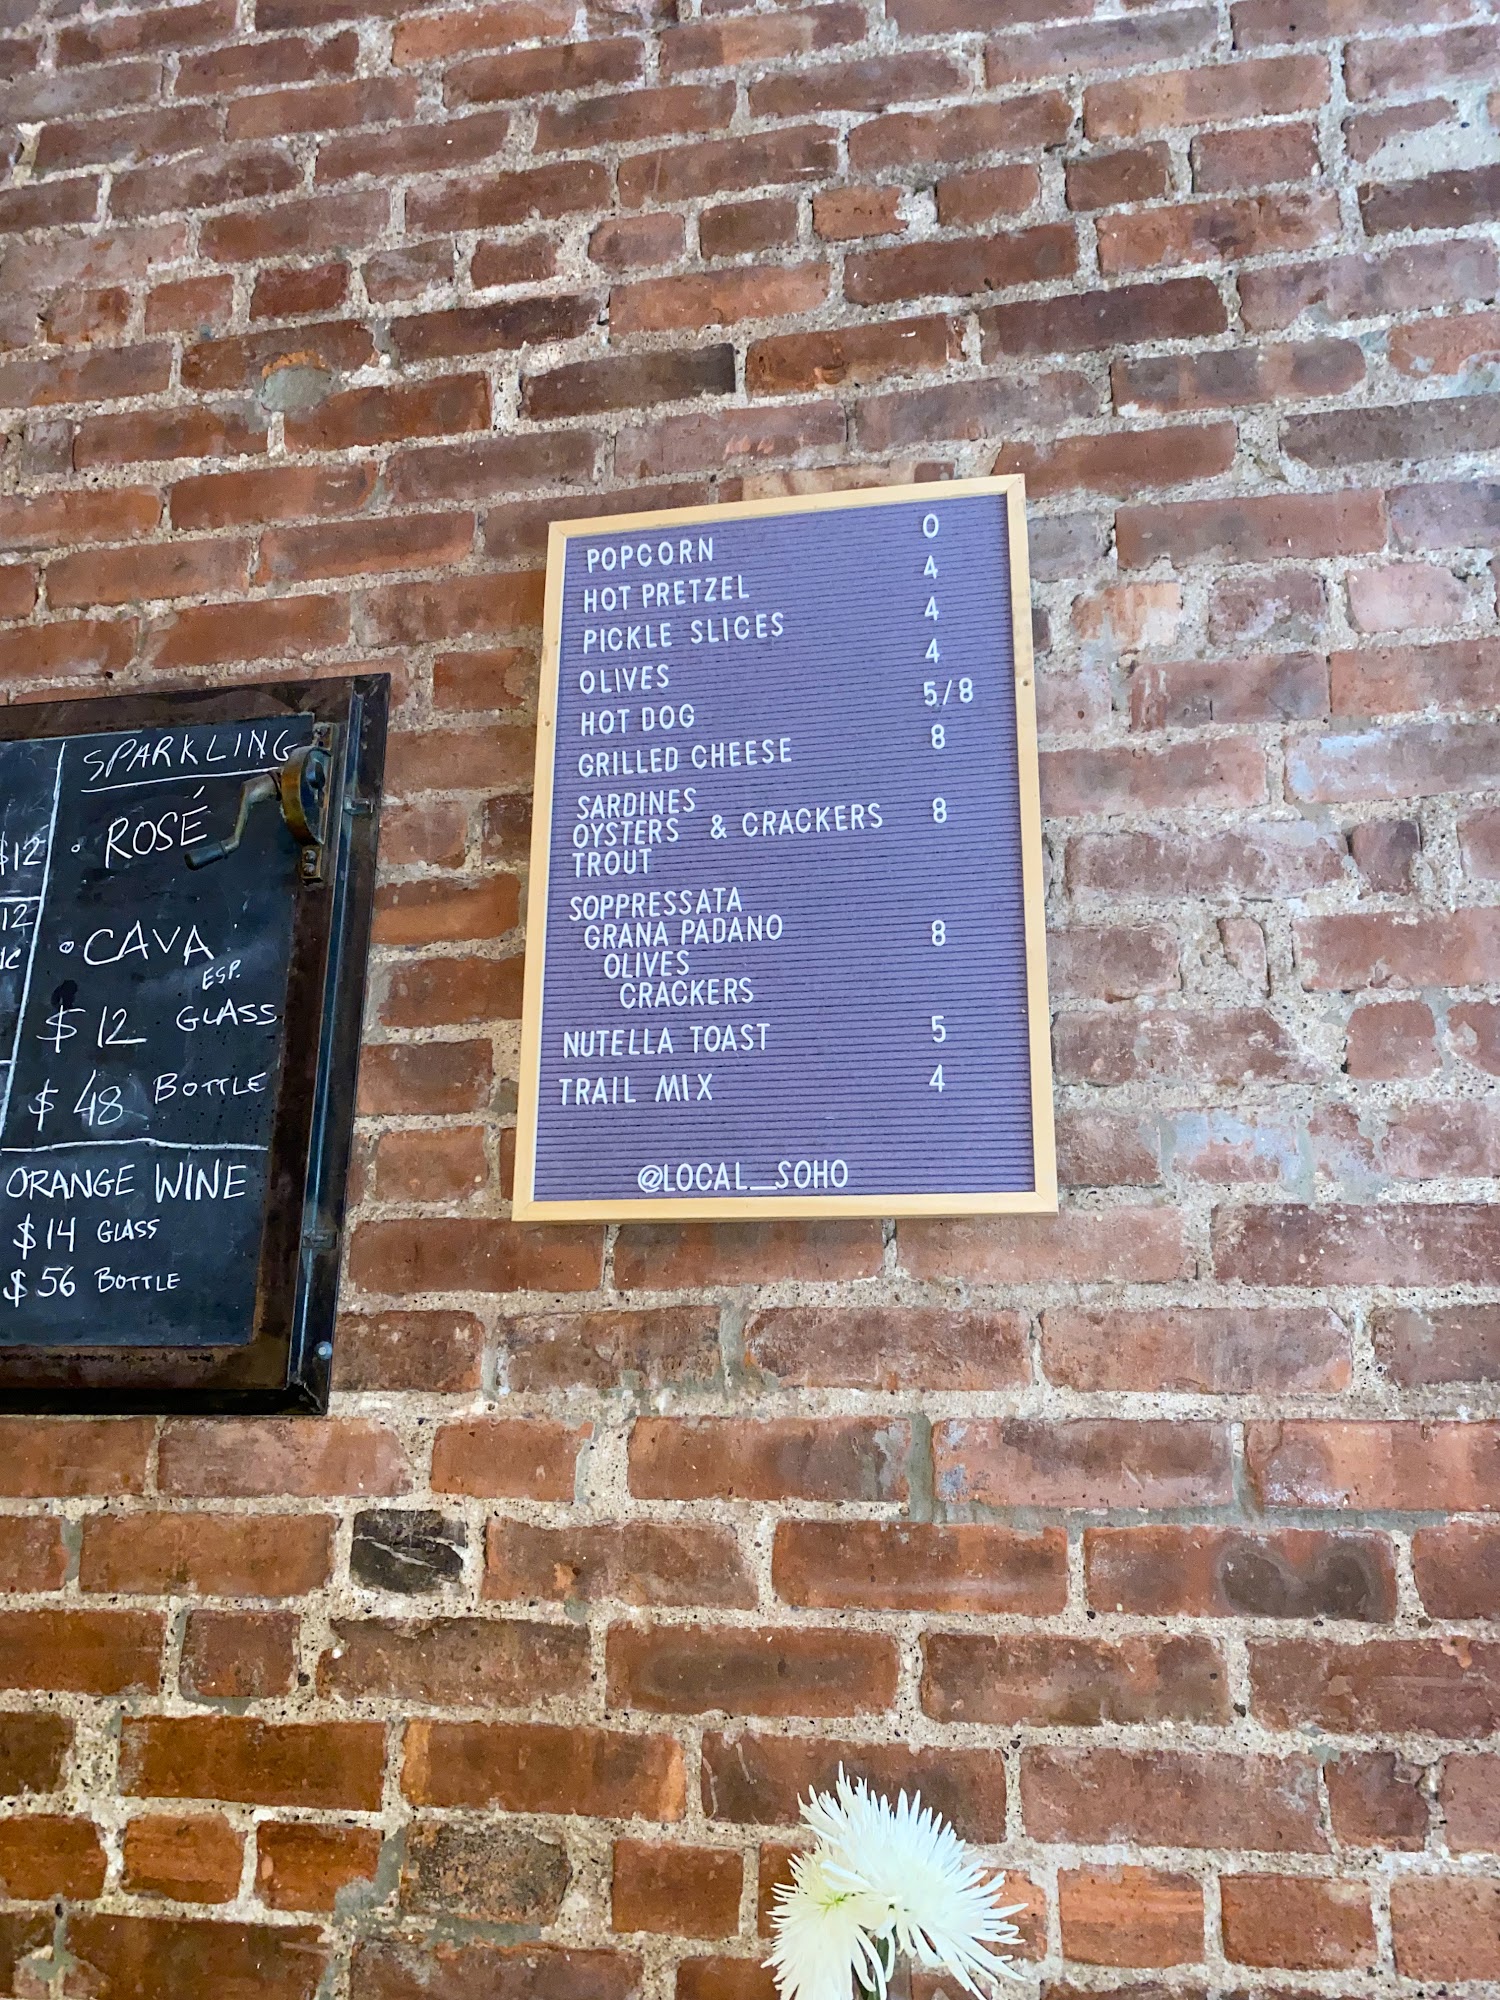 POPCORN 0
HOT PRETZEL 4
PICKLE SLICES 4
OLIVES 4
HOT DOG 5/8
GRILLED CHEESE 8
SARDINES
OYSTERS & CRACKERS 8
TROUT
SOPPRESSATA
GRANA PADANO 8
OLIVES
CRACKERS
NUTELLA TOAST 5
TRAIL MIX 4
@LOCAL_SOHO
$12
12
SPARKLING
• ROSÉ
• CAVA
ESP.
$12 GLASS
$48 BOTTLE
ORANGE WINE
$14 GLASS
$56 BOTTLE